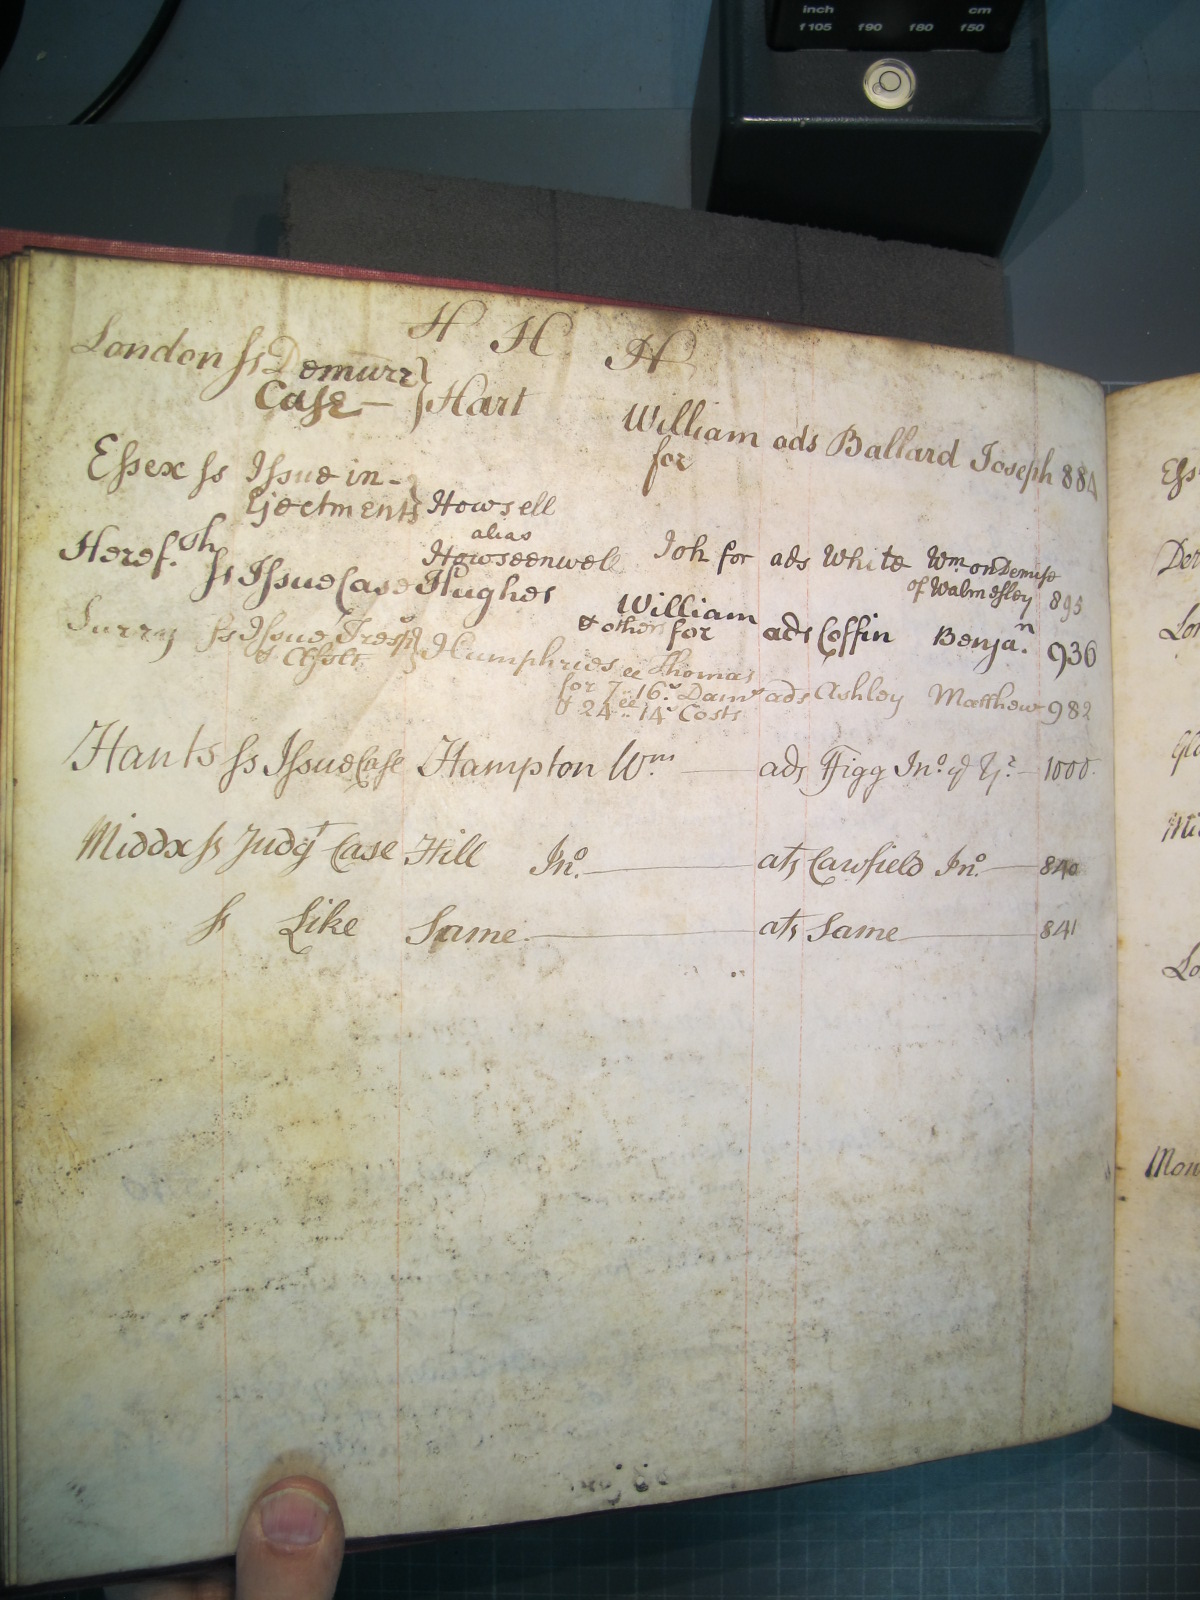 inch cm
f105 f90 f80 f50
H H H
London ss Demurr
Case — } Hart William ads Ballard Joseph 884
for
Essex ss Issue in -
Ejectments } Howsell
alias
Howseenwell Joh for ads White Wm on Demise
of Walmesley 895
Heref.sh ss Issue Case Hughes William ads Coffin Benja.n 936
& others for
Surry ss Issue Tresp
& Asslt } Humphries Thomas
for 7 16 Dam ads Ashley Matthew 982
& 24 14 Costs
Hants ss Issue Case Hampton Wm. ads Figg Jno. 1000
Middx ss Judgt Case Hill Jno. ats Cawfield Jno. 840
ss Like Same ats Same 841
Ess
Der
Lon
Glo
Mid
Lo
Mon